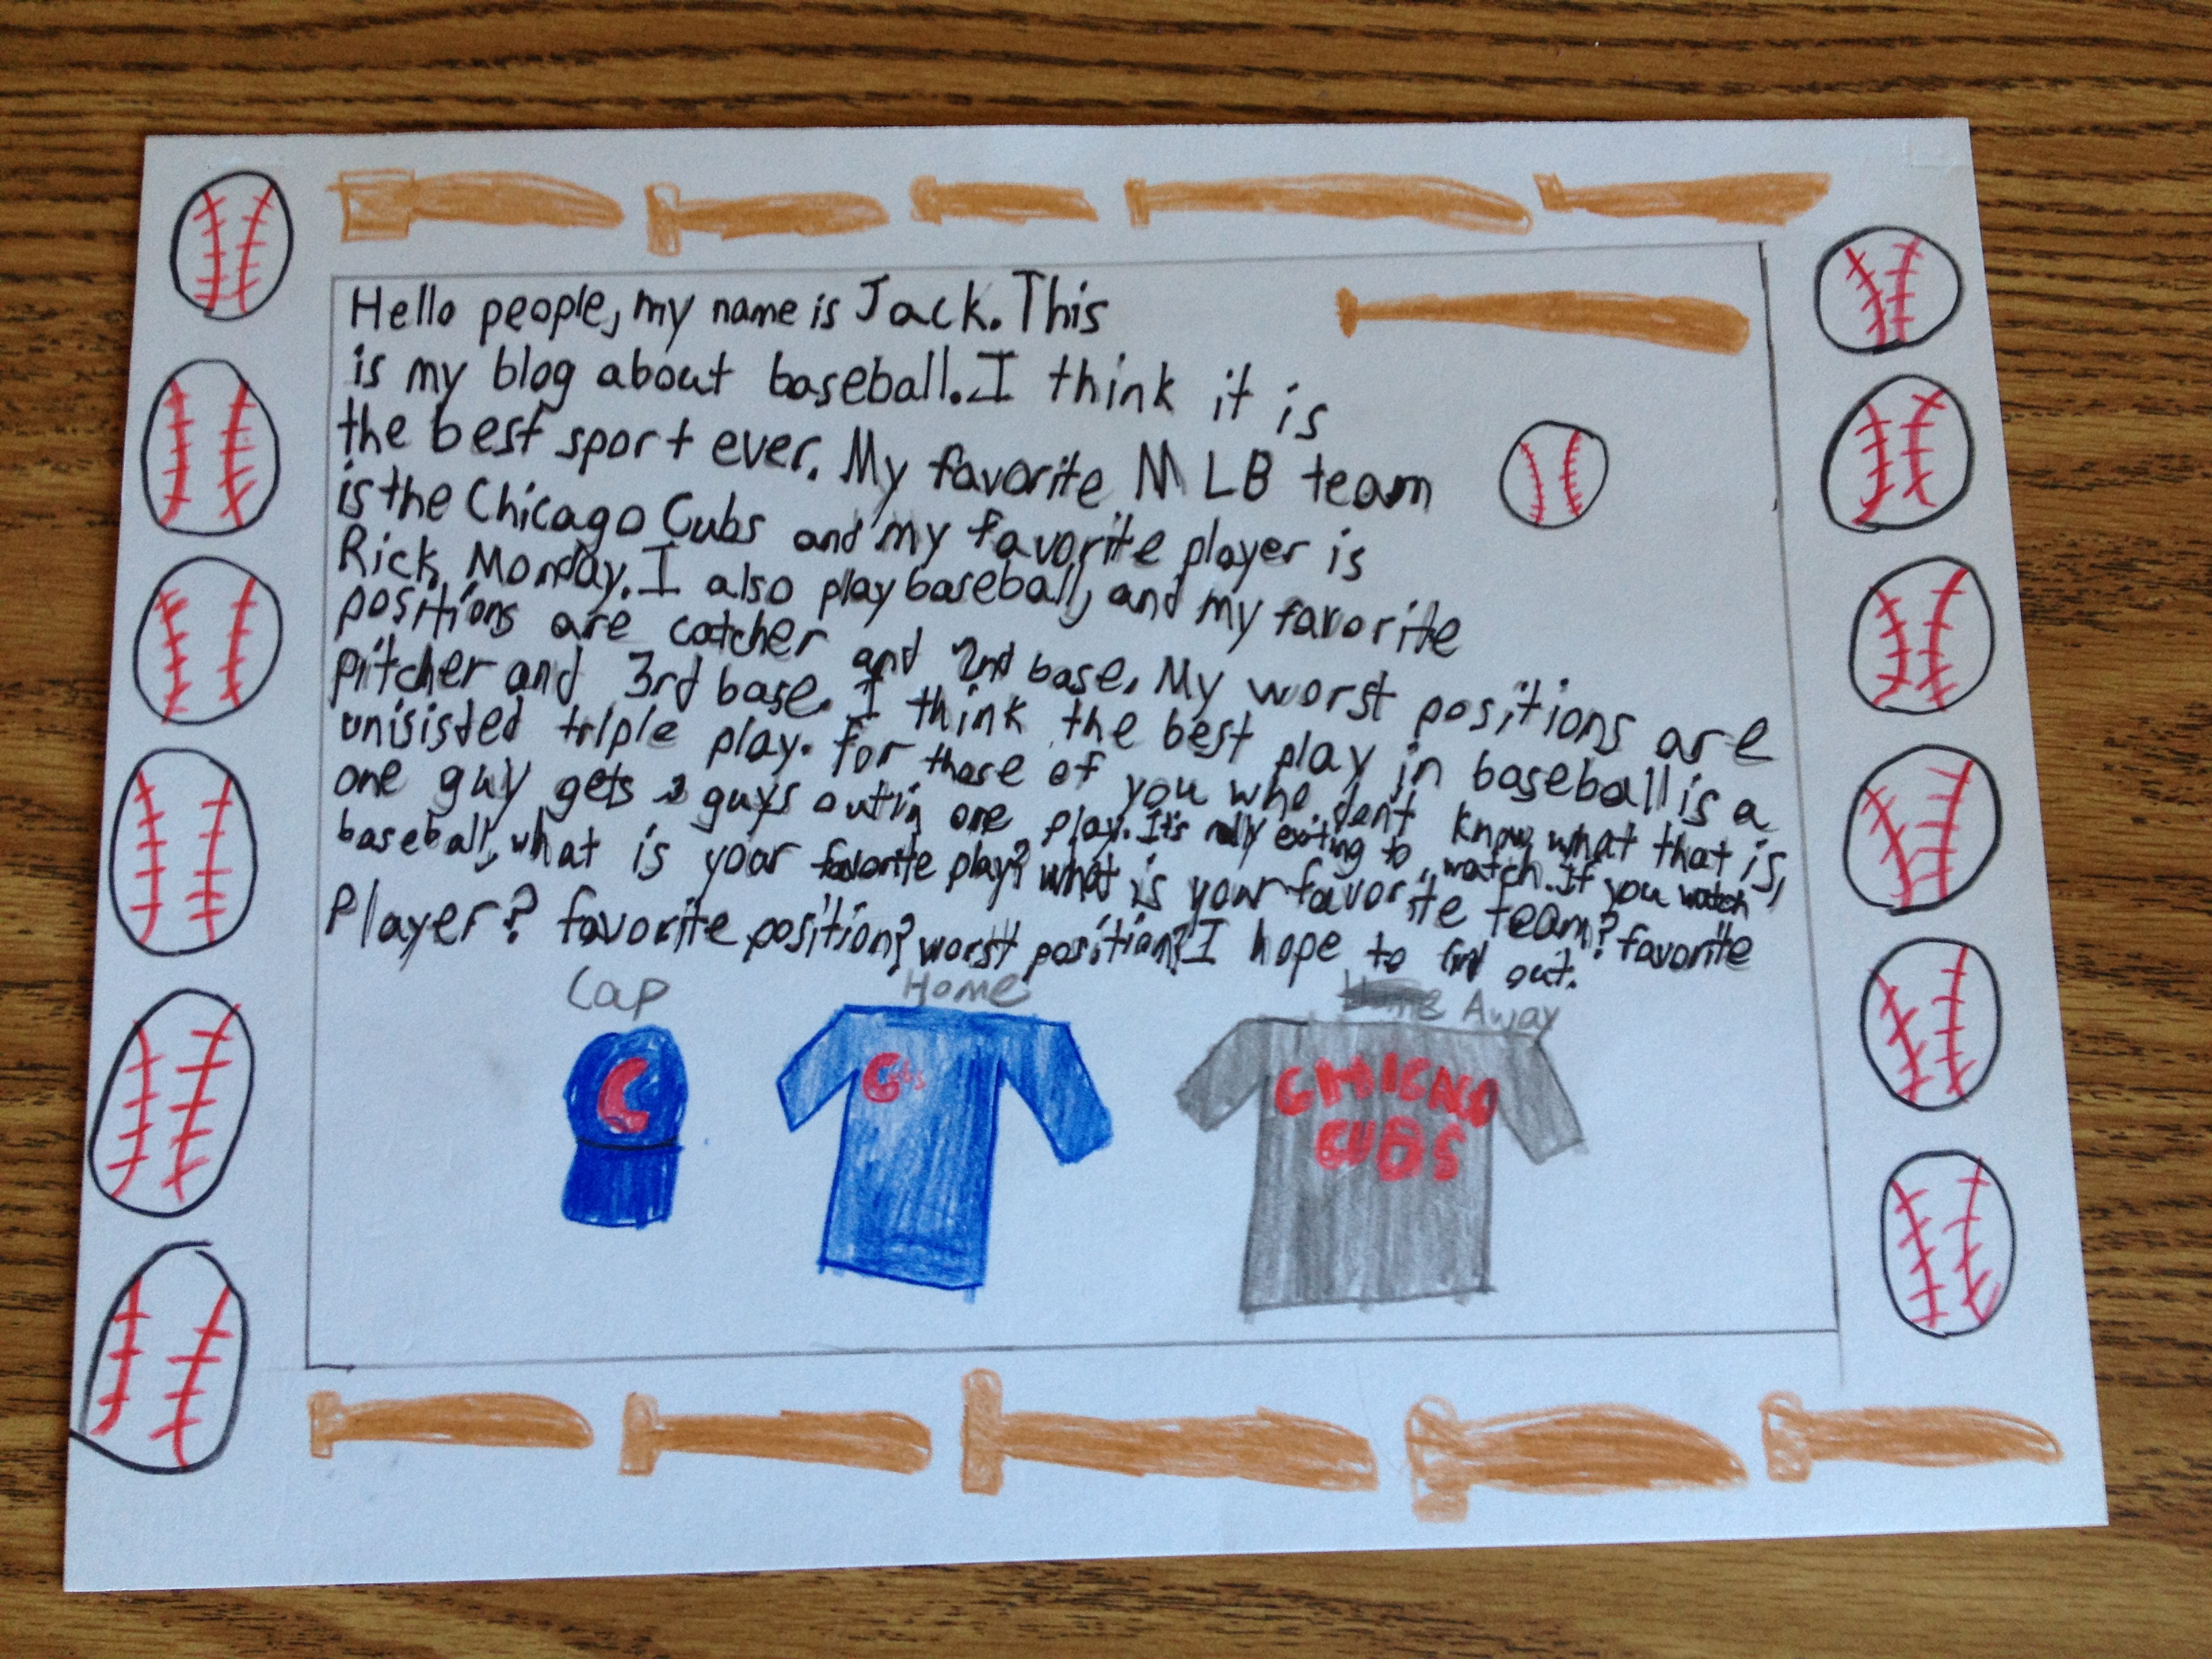 Hello people, my name is Jack. This
is my blog about baseball. I think it is
the best sport ever. My favorite MLB team
is the Chicago Cubs and my favorite player is
Rick Monday. I also play baseball, and my favorite
positions are catcher and 2nd base. My worst positions are
pitcher and 3rd base. I think the best play in baseball is a
unisisted triple play. for those of you who dont know what that is,
one guy gets 3 guys out in one play. It's relly exiting to watch. If you watch
baseball, what is your favorite play? what is your favorite team? favorite
Player? favorite position? worst position? I hope to find out.
Cap
Home
Away
C
Cubs
CHICAGO
CUBS